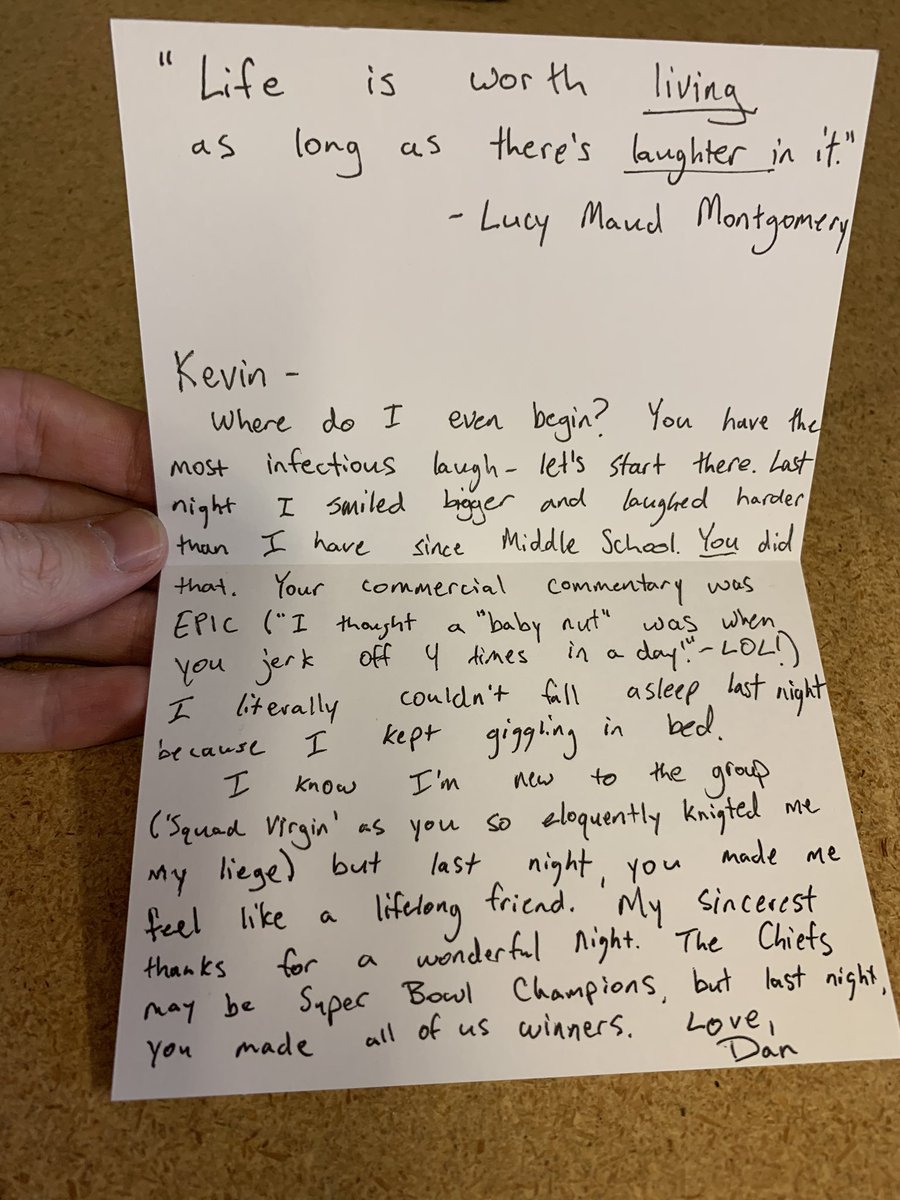 "Life is worth living
as long as there's laughter in it."
- Lucy Maud Montgomery
Kevin -
Where do I even begin? You have the
most infectious laugh - let's start there. Last
night I smiled bigger and laughed harder
than I have since Middle School. You did
that. Your commercial commentary was
EPIC ("I thought a "baby nut" was when
you jerk off 4 times in a day!" - LOL!)
I literally couldn't fall asleep last night
because I kept giggling in bed.
I know I'm new to the group
('Squad Virgin' as you so eloquently knigted me
my liege) but last night, you made me
feel like a lifelong friend. My sincerest
thanks for a wonderful night. The Chiefs
may be Super Bowl Champions, but last night,
you made all of us winners. Love,
Dan